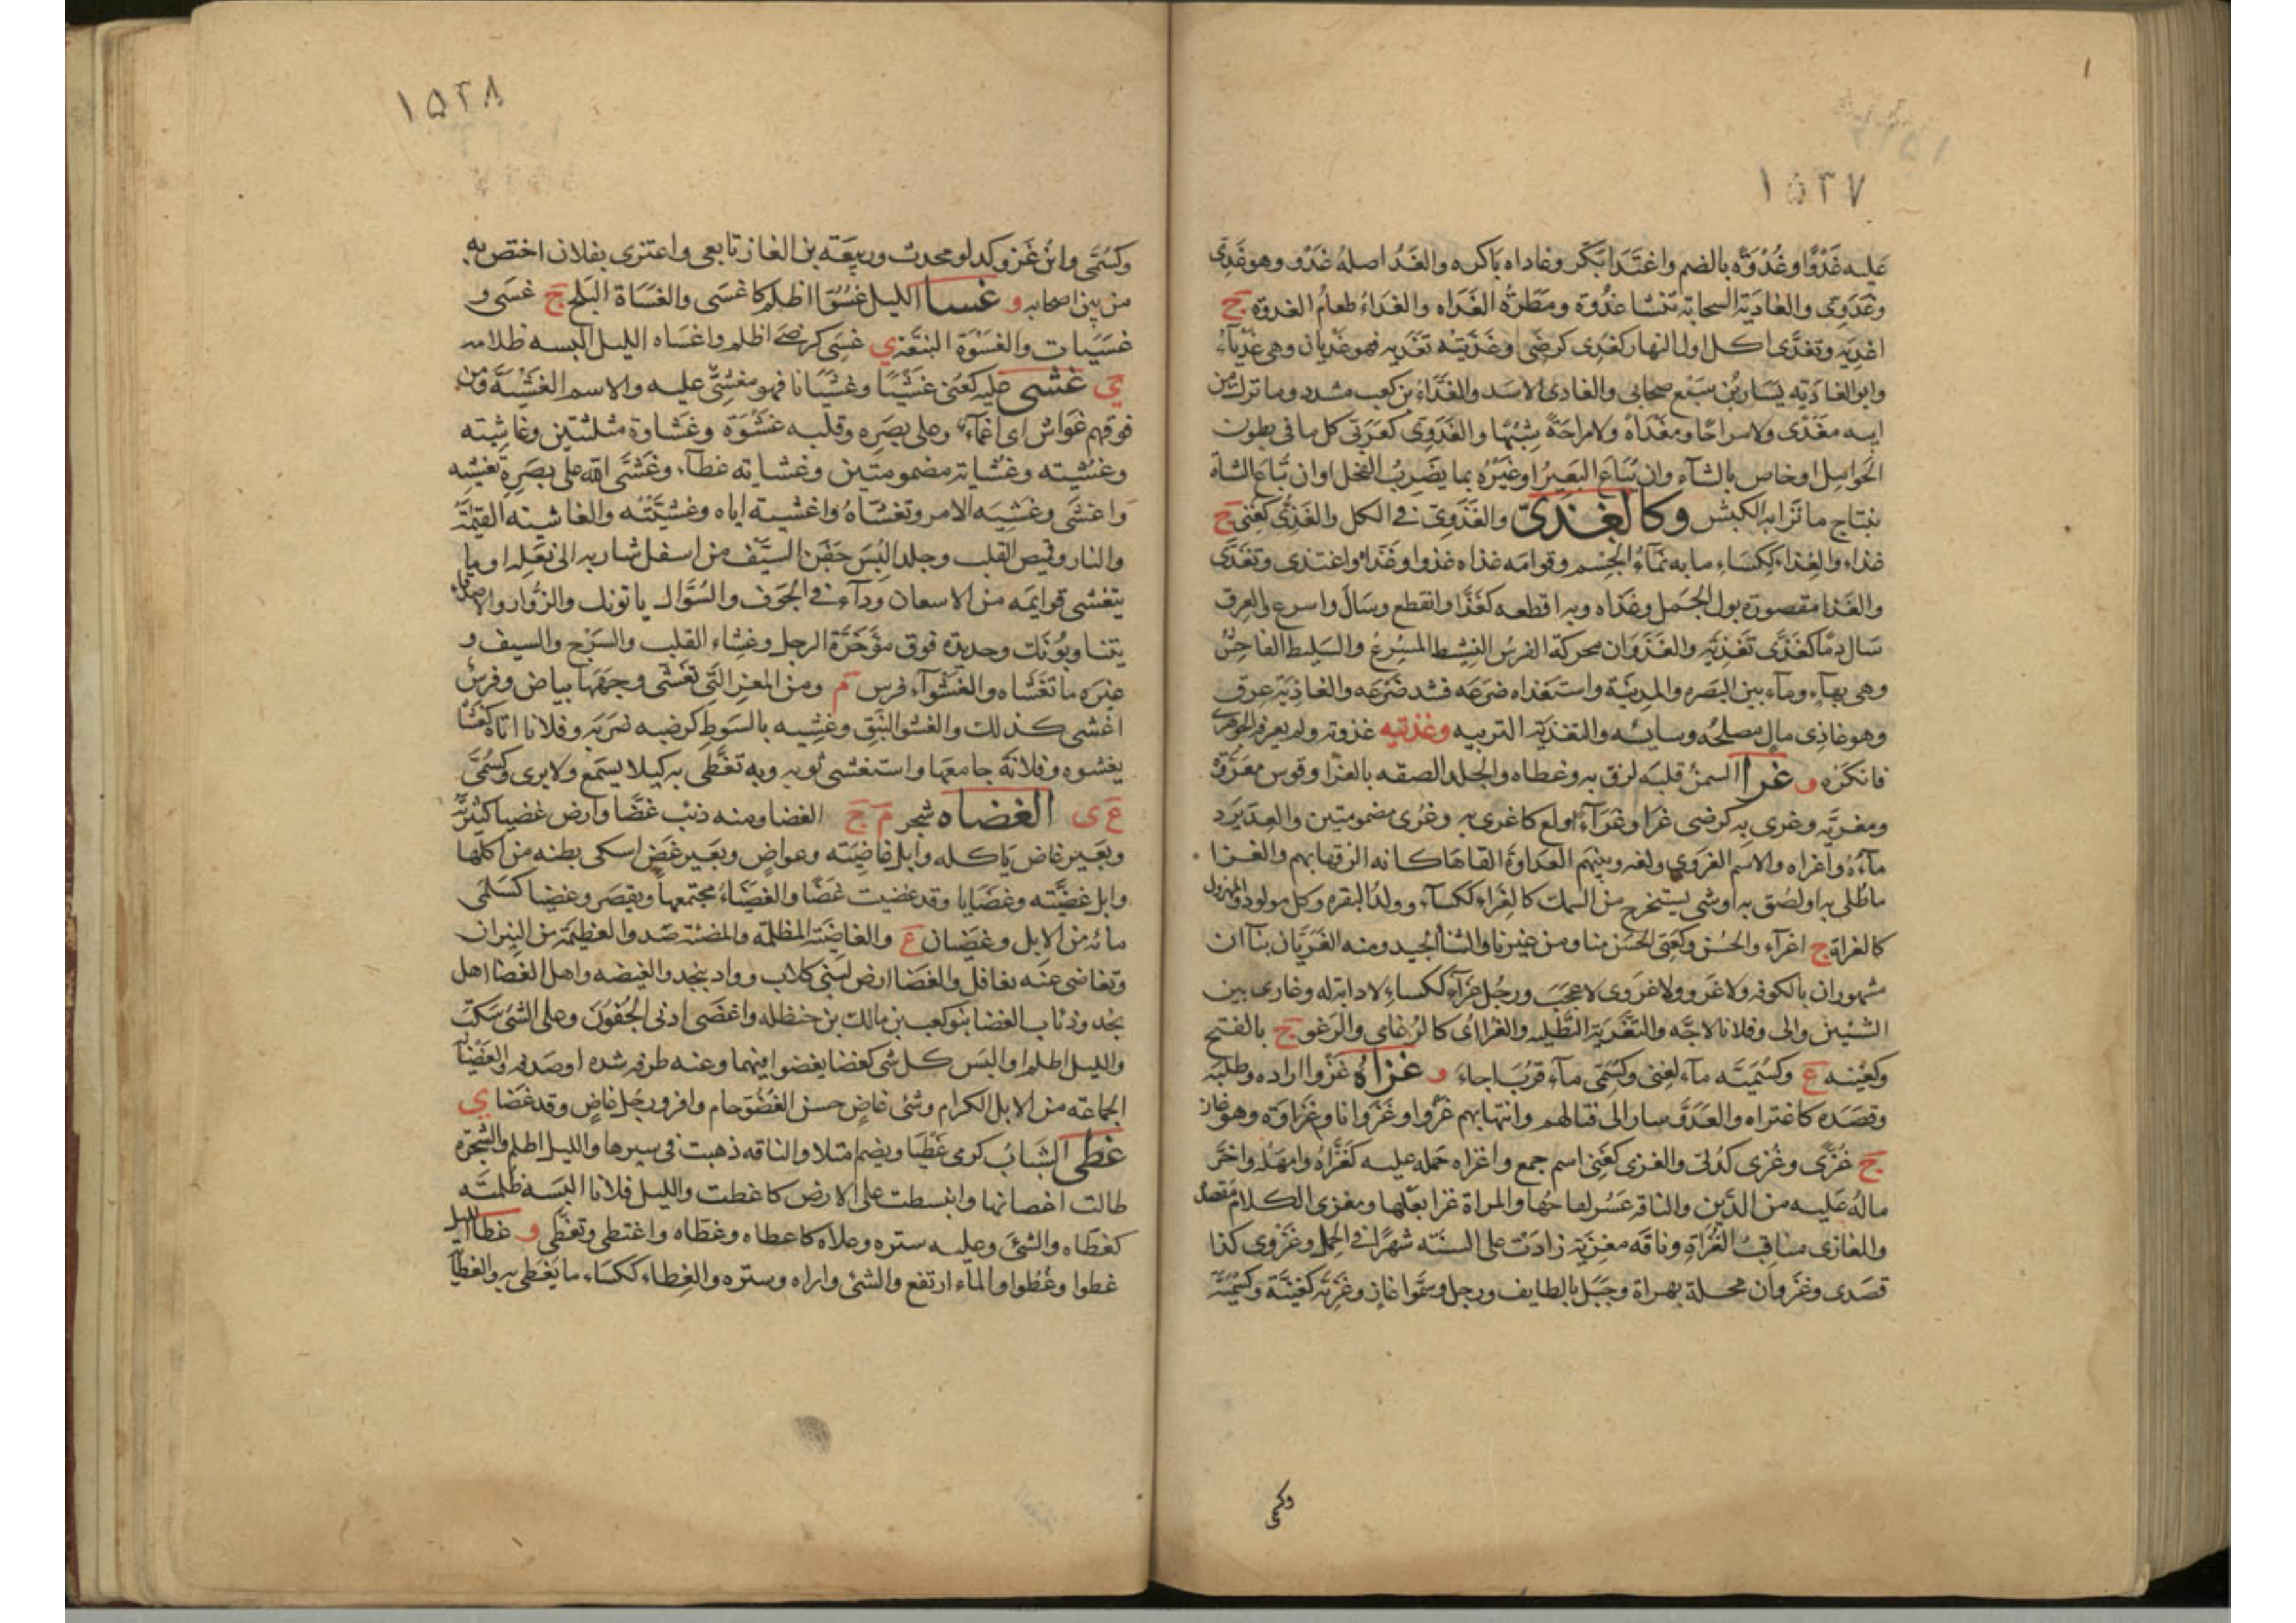 ١٥٢٧
عليه غدوا وغدوة بالضم واغتدا بكر وغاداه باكره والغد اصله غدو وهو غدى
وغدوى والغادية السحابة تنشا غدوة ومطرة الغداه والغداء طعام الغدوة ج
اغدية وتغدى اكل اول النهار كغدى كرضى وغديته تغدية فهو غديان وهى غدياء
وابن الغاديه يسار بن سبع صحابى والغادى الاسد والغداء بن كعب مشدد وما ترك من
ابيه مغدى ولا مراحا ومغداه ولا مراحة شبها والغدوى كعربى كل ما فى بطون
الحوامل او خاص بالشاء وان تباع البعير او غيره بما يضرب الفحل او ان تباع الشاة
بنتاج ما نزا به الكبش وكالغذى والغذوى فى الكل والغذى كغنى ج
غذاء والغذاء ككساء ما به نماء الجسم وقوامه غذاه غذوا وغذاه واغتذى وتغذى
والغذا مقصورة بول الجمل وغذاه وبه اقطعه كغذا وانقطع وسال واسرع والعرق
سال دما كغذى تغذية والغذوان محركة الفرس النشيط المسرع والسليط الفاحش
وهى بهاء وماء بين البصره والمدينة واستغذاه ضرعه فشد ضرعه والغاذية عرق
وهو غاذى مال مصلحه وسايسه والتغذية التربيه وغذتيه غذوته ولم يعرفه الجوهرى
فانكره و غرا السمن قلبه لزق به وغطاه والجلد الصقه بالغرا وقوس مغروة
ومغريه وغرى به كرضى غرا وغراء اولع كاغرى به وغرى مضمومتين والعد يرد
ماءه واغراه والاسم الغروى ولغه وبينهم العداوة القاها كانه الزقها بهم والغرا
ماطلى به او لصق به اوشى يستخرج من السمك كالغراء ككساء وولد البقره وكل مولود والمهزول
كالغراة ج اغراء والحسن وكغنى الحسن منا ومن غيرنا والبنا الجيد ومنه الغريان بناآن
مشهوران بالكوفه ولا غرو ولا غروى لا عجب ورجل غراء ككساء لا دابة له وغارى بين
الشيئين والى وفلانا لاجه والتغرية التطليه والغراى كالرغامى والرغو ج بالفتح
وكغينه ع وكسميته ماء لغنى وكسمى ماء قرب اجاء و غزاه غزوا اراده وطلبه
وقصده كاغتزاه والعدو سار الى قتالهم وانتهابهم غزوا وغزوانا وغزاوة وهو غاز
ج غزى وغزى كدلى والغزى كغنى اسم جمع واغزاه حمله عليه كغزاه وامهله واخر
ماله عليه من الدين والناقه عسر لقاحها والمراة غزا بعلها ومغزى الكلام مقصده
والمغازى مناقب الغزاة وناقه مغزية زادت على السنة شهرا فى الحمل وغزوى كذا
قصدى وغزوان محلة بهراة وجبل بالطايف ورجل وسموا غازيه وغزية كغنية وكسمية
وكسمى
١٥٢٨
وكسمى وابن غزو كدلو محدث وربيعة بن الغاز تابعى واعتزى بفلان اختص به
من بين اصحابه و غسا الليل غسوا اظلم كاغسى والغساة البلح ج غسى و
غسيات والغسوة النبقة ي غسى كرضى اظلم واغساه الليل البسه ظلامه
ي غشى عليه كعنى غشيا وغشيانا فهو مغشى عليه والاسم الغشية ومن
فوقهم غواش اى اغماء وعلى بصره وقلبه غشوة وغشاوة مثلثتين وغاشيته
وغشيته وغشاية مضمومتين وغشاية غطاء وغشى الله على بصره تغشيه
واغشى وغشيه الامر وتغشاه واغشيته اياه وغشيته والغاشيه القيمة
والنار وقميص القلب وجلد البس جفن السيف من اسفل شاربه الى نعله او ما
يتغشى قوايمه من الاسعان وداء فى الجوف والسؤال ياتونك والزوار والاصدقاء
يتناوبونك وحديدة فوق مؤخرة الرجل وغشاء القلب والسرج والسيف و
غيره ما تغشاه والغشواء فرس م ومن المعز التى تغشى وجهها بياض وفرس
اغشى كذلك والغشو النبق وغشيه بالسوط كرضيه ضربه وفلانا اتاه كغشا
يغشوه وفلانة جامعها واستغشى ثوبه وبه تغطى به كيلا يسمع ولا يرى وكسمى
ع ى الغضاه شجر م ج الغضا ومنه ذئب غضا وارض غضيا كثيرته
وبعير غاض ياكله وابل غاضيته وعواض وبعير غض اسكى بطنه من اكلها
وابل غضيته وغضايا وقد غضيت غضا والغضياء مجتمعها ويقصر وغضيا كسلمى
مائه من الابل وغضيان ع والغاضية المظلمة والمضئة ضد والعظيمة من النيران
وتغاضى عنه تغافل والغضا ارض لبنى كلاب وواد بنجد والغيضه واهل الغضا اهل
نجد وذئاب الغضا بنو كعب بن مالك بن حنظله واغضى ادنى الجفون وعلى الشئ سكت
والليل اظلم او البس كل شى كغضا يغضوا فيهما وعنه طرفه شده او صده والغضيانة
الجماعة من الابل الكرام وشئ غاض حسن الغضو جام وافر ورجل غاض وقد غضا ي
غطى الشباب كرمى غطيا ويضم امتلا والناقه ذهبت فى سيرها والليل اظلم والشجرة
طالت اغصانها وانبسطت على الارض كاغطت والليل فلانا البسه ظلمته
كغطاه والشئ وعليه ستره وعلاه كاعطاه وغطاه واغتطى وتغطى و غطا الليل
غطوا وغطوا والماء ارتفع والشئ واراه وستره والغطاء ككساء ما يغطى به والغطايه